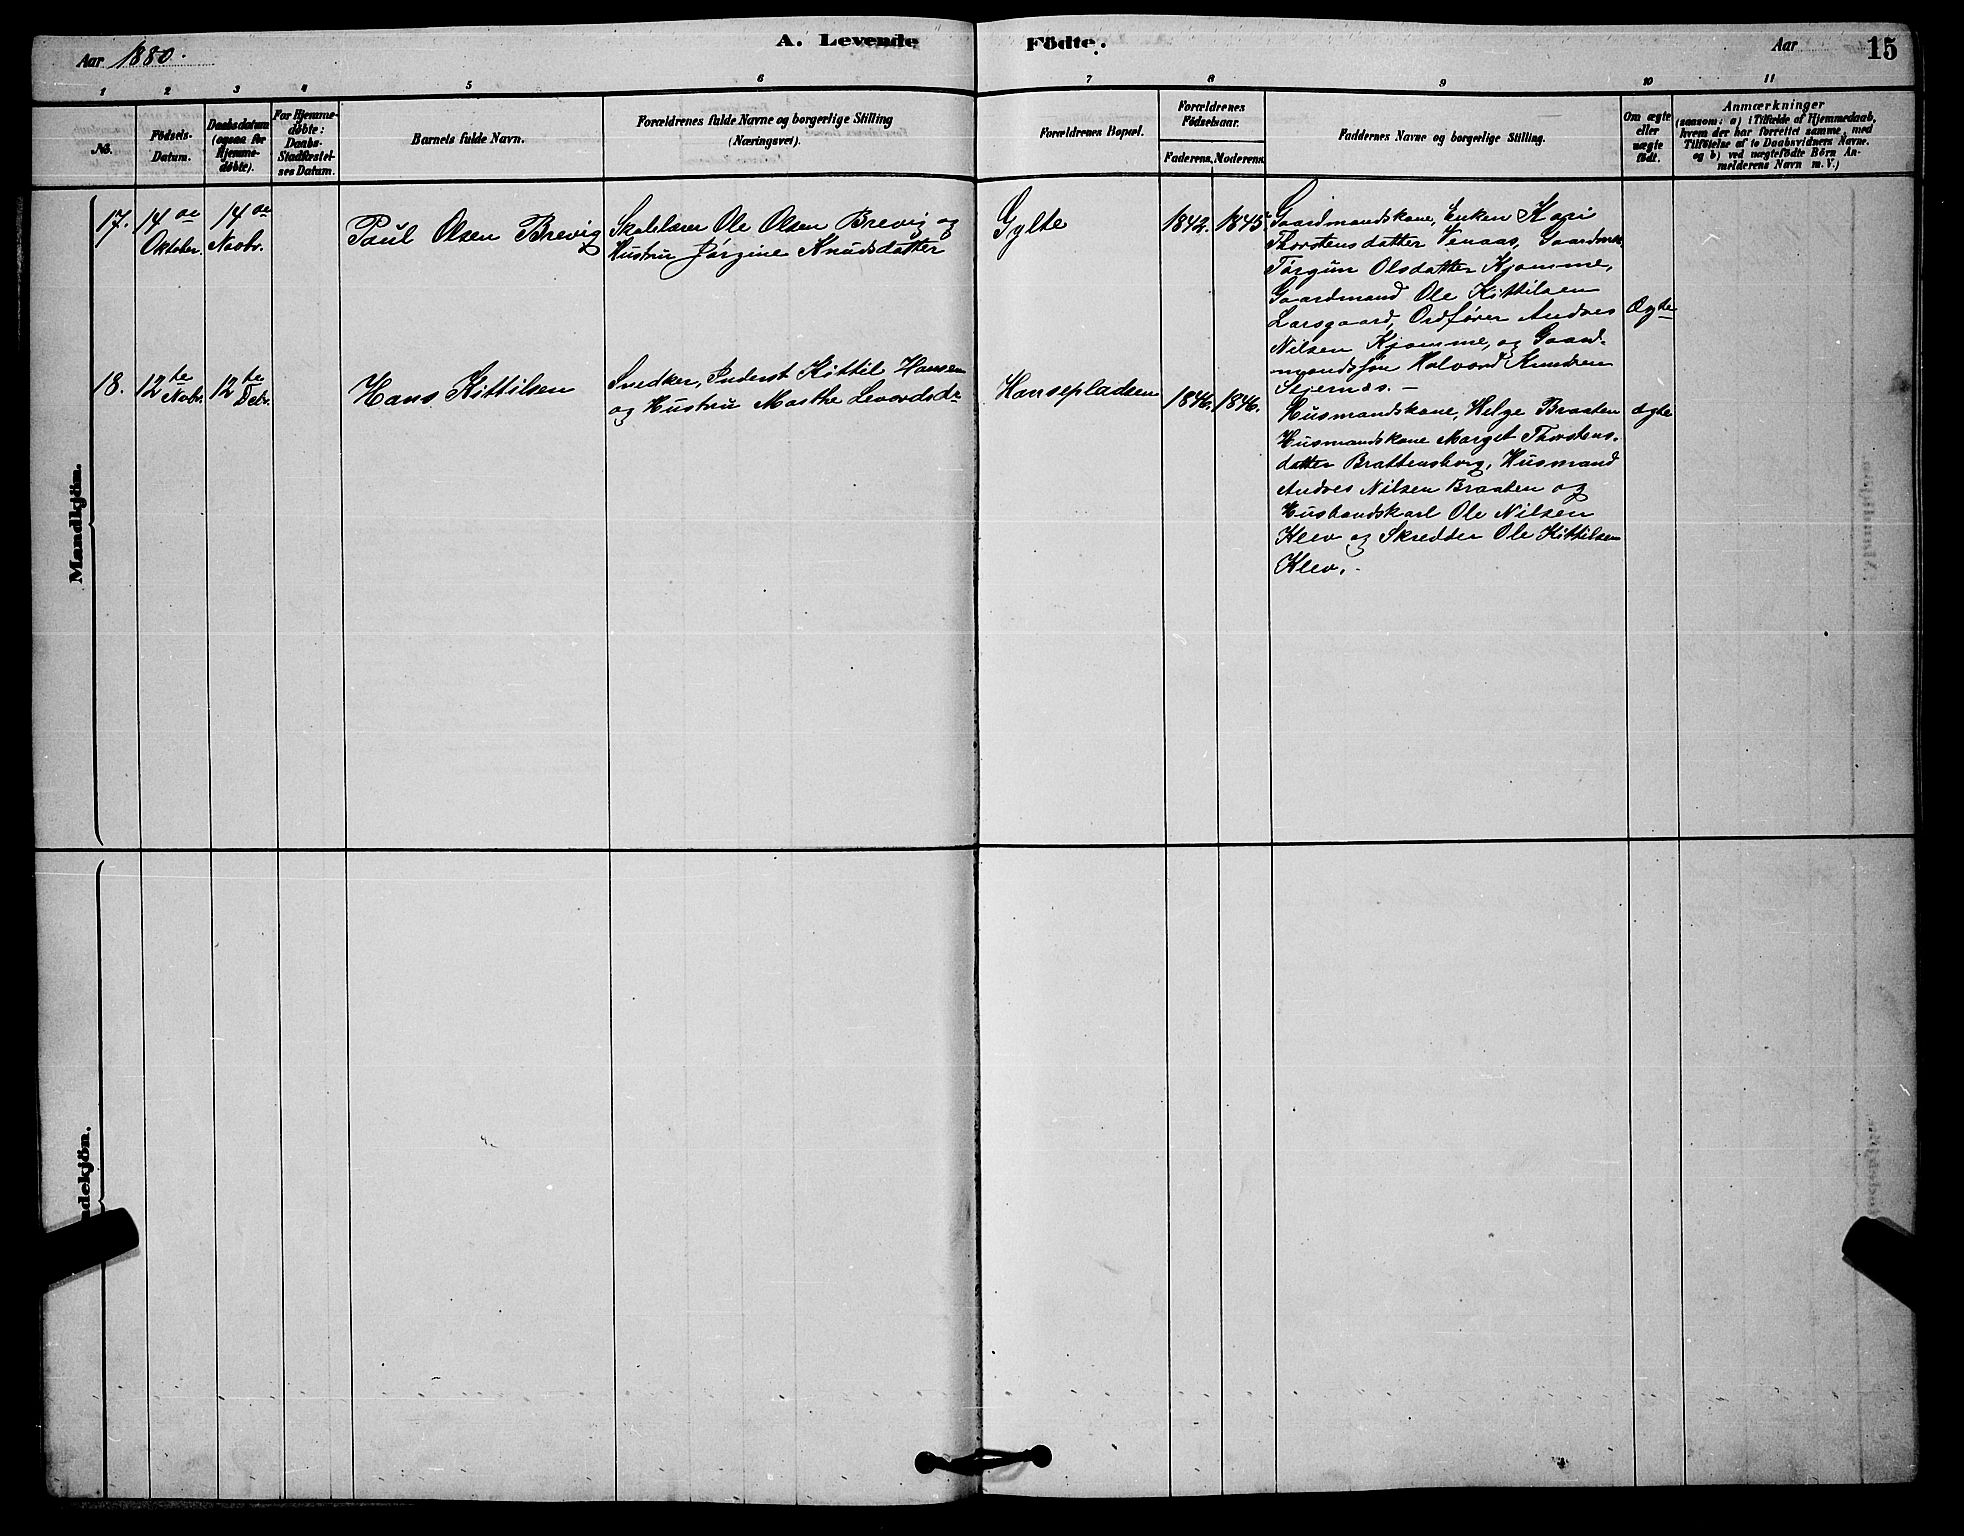 Aar 1880.
A. Levende
Födte.
Aar
15
1
2
3
4
5
6
7
8
9
10
11
No.
Födsels-
Datum.
Daabsdatum
(ogsaa for
Hjemme-
döbte).
For Hjemme-
döbte:
Daabs-
Stadfæstel-
ses Datum.
Barnets fulde Navn.
Forældrenes fulde Navne og borgerlige Stilling
(Næringsvei).
Forældrenes Bopæl.
Forældrenes
Födselsaar.
Faderens.
Moderens.
Faddernes Navne og borgerlige Stilling.
Om ægte
eller
uægte
födt.
Anmærkninger
(saasom: a) i Tilfælde af Hjemmedaab,
hvem der har forrettet samme, med
Tilföielse af to Daabsvidners Navne.
og b) ved uægtefödte Börn An-
melderens Navn m. V.)
Mandkjön.
17.
14de
Oktober.
14de
Novbr.
Paul Olsen Brevig
Skolelærer Ole Olsen Brevig og
Hustru Jørgine Knudsdatter
Gylte
1842.
1845.
Gaardmandskone, Enken Kari
Thorstensdatter Venaas, Gaardmk
Tørgun Olsdatter Kjomme,
Gaardmand Ole Kittilsen
Larsgaard, Ordfører Andres
Nilsen Kjomme, og Gaard-
mandssøn Halvord Knudsen
Stjernes. –
Ægte
18.
12te
Novbr.
12te
Debr.
Hans Kittilsen
Snedker, Inderst Kittil Hansen
og Hustru Marthe Levordsdr
Hansepladsen
1846.
1846.
Husmandskone, Helge Braaten
Husmandskone Marget Thorstens-
datter Brattensborg, Husmand
Andres Nilsen Braaten og
Husbondskarl Ole Nilsen
Klev og Skredder Ole Kittilsen
Klev. -
ægte
ndekjön.